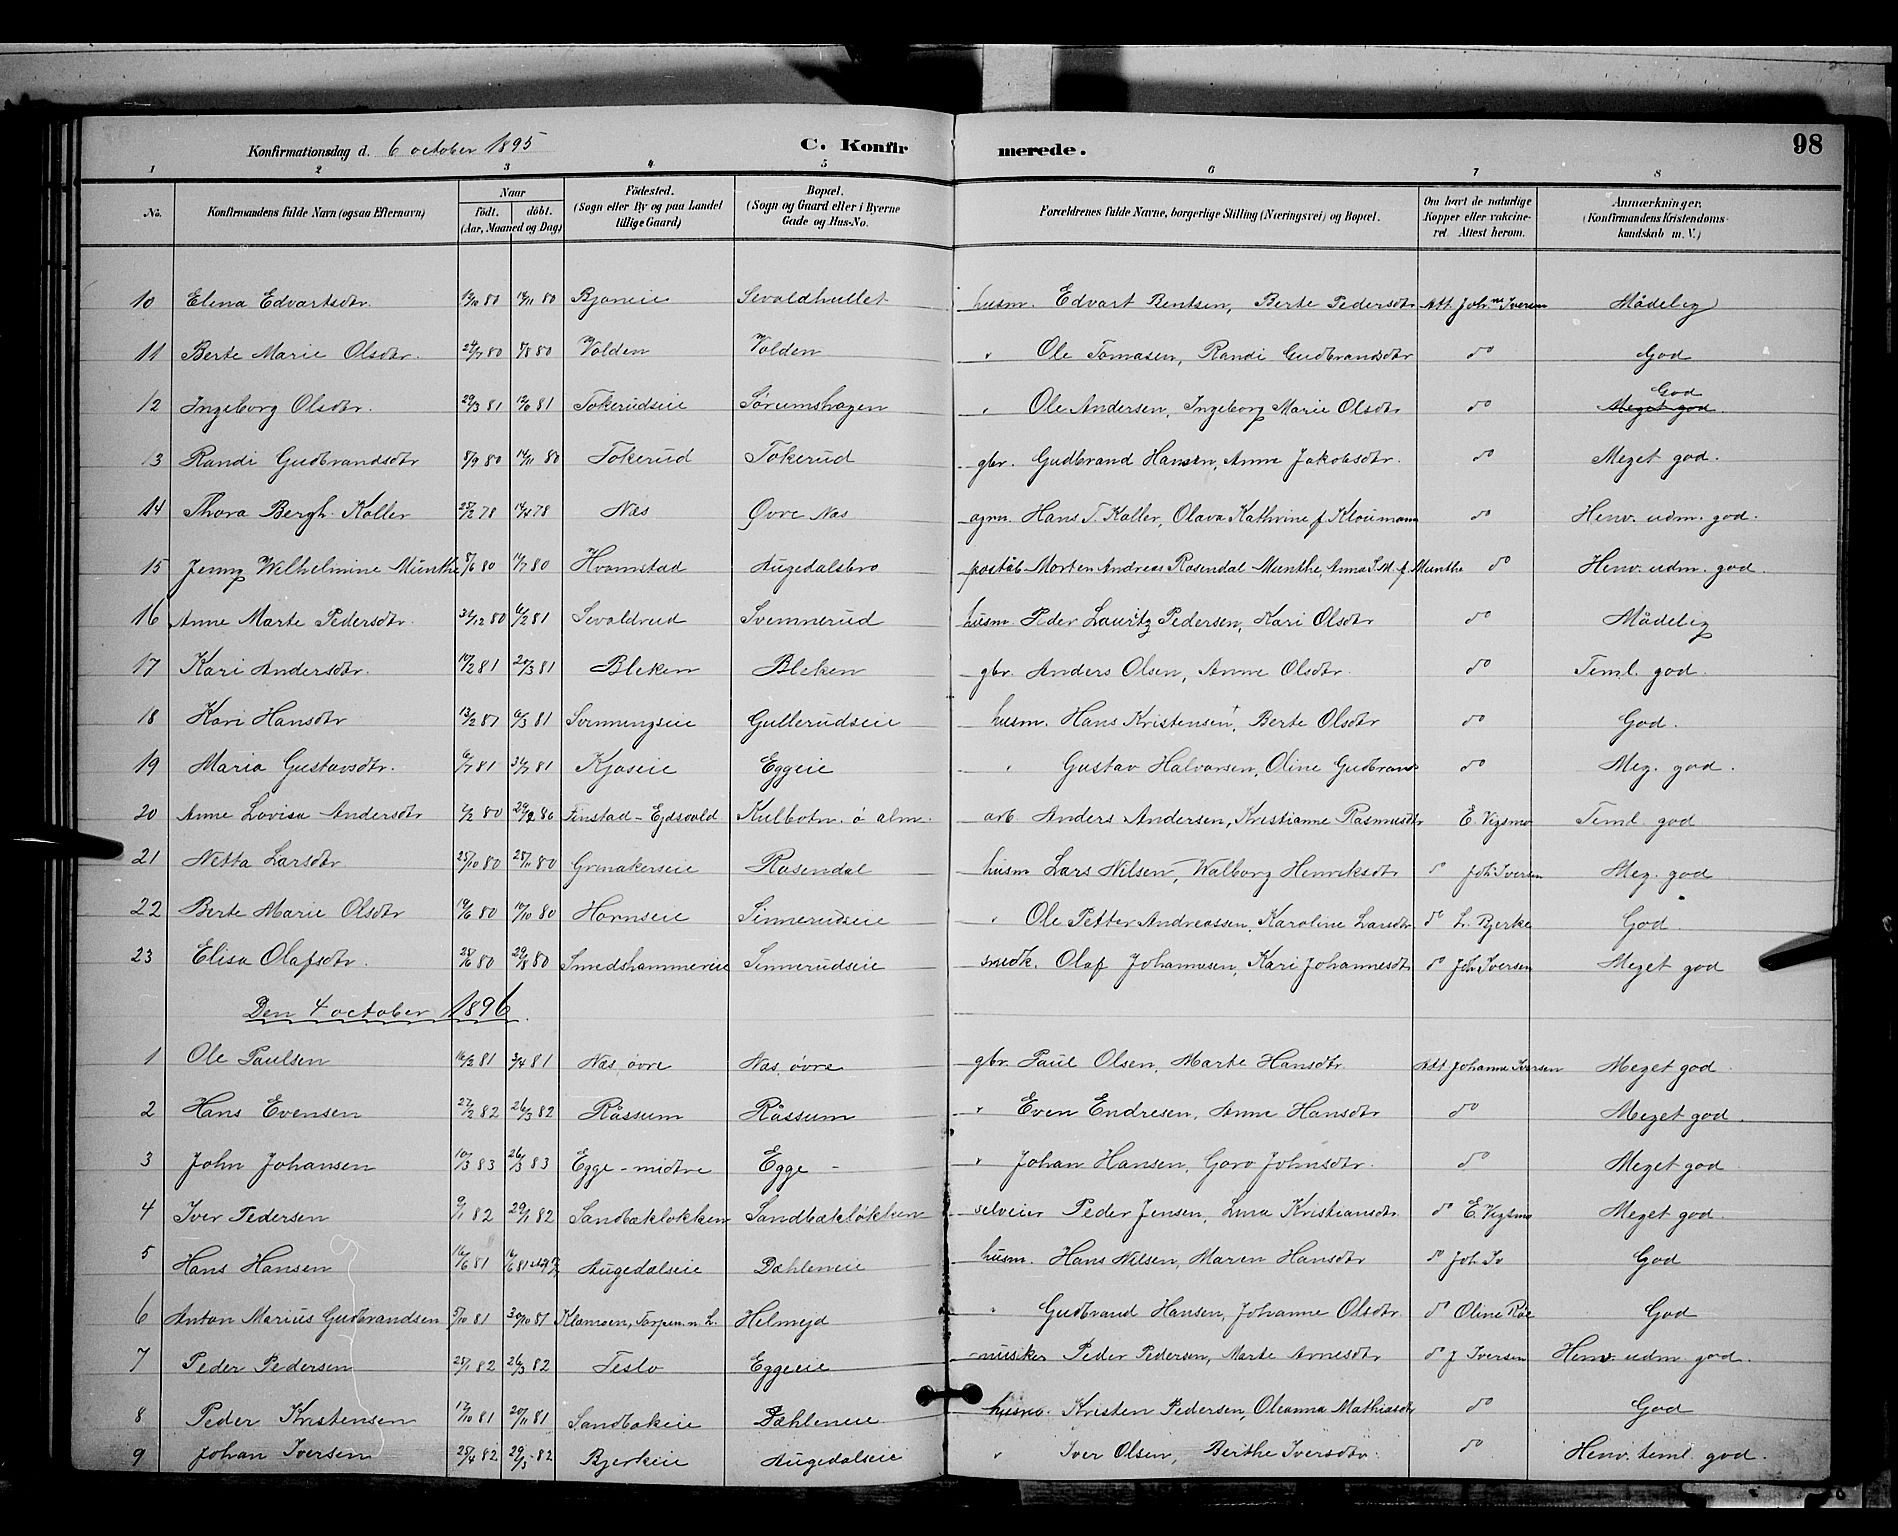 98
Konfirmationsdag d. 6 october 1895 C. Konfirmerede.
1 2 3 4 5 6 7 8
No. Konfirmandens fulde Navn (ogsaa Efternavn) Naar födt. döbt. (Aar, Maaned og Dag) Födested. (Sogn eller By og paa Landet tillige Gaard) Bopæl. (Sogn og Gaard eller i Byerne Gade og Hus-No. Forældrenes fulde Navne, borgerlige Stilling (Næringsvei) og Bopæl. Om havt de naturlige Kopper eller vakcineret. Attest herom. Anmærkninger. (Konfirmandens Kristendomskundskab m. V.)
10 Elena Edvartsdtr. 80 80 Bjoneie Sevaldhullet husm. Edvart Bentsen, Berte Pedersdtr Att. Joh. Iversen Mådelig
11 Berte Marie Olsdtr. 80 80 Volden Volden " Ole Tomasen, Randi Gudbrandsdtr do God
12 Ingeborg Olsdtr. 29/3 81 81 Tokerudseie Sørumshagen " Ole Andersen, Ingeborg Marie Olsdtr do God Meget god
13 Randi Gudbrandsdtr 5/9 80 14/11 80 Tokerud Tokerud gbr. Gudbrand Hansen, Anne Jakobsdtr. do Meget god.
14 Thora Bergh. Koller 78 78 Næs Øvre Næs agrn. Hans T. Koller, Olava Kathrine f. Kloumann do Henv. udm. god.
15 Jenny Wilhelmine Munthe 5/6 80 80 Hvamstad Augedalsbro poståb Morten Andreas Rosendal Munthe, Anna S.M. f. Munthe do Henv. udm. god.
16 Anne Marte Pedersdtr. 31/12 80 6/2 81 Sevaldrud Svennerud husm. Peder Lauritz Pedersen, Kari Olsdtr do Mådelig
17 Kari Andersdtr. 81 81 Bleken Bleken gbr. Anders Olsen, Anne Olsdtr. do Teml. god.
18 Kari Hansdtr 13/2 81 6/3 81 Sørumengseie Gullerudseie husm. Hans Kristensen, Berte Olsdtr do God.
19 Maria Gustavsdtr. 81 81 Kjoseie Eggeie " Gustav Halvorsen, Oline Gudbrands do Meg. god.
20 Anne Lovisa Andersdtr 80 80 Finstad - Ejdsvold Kulbotn. ö alm. arb. Anders Andersen, Kristianne Rasmusdtr E. Vigsmo Teml. god
21 Netta Larsdtr 25/10 80 28/11 80 Grinakerseie Rosendal husm Lars Nilsen, Walborg Henriksdtr do Joh Iversen Meg. god
22 Berte Marie Olsdtr 80 80 Hornseie Sinnerudseie " Ole Petter Andreassen, Karoline Larsdtr. do L. Bjerke God.
23 Elisa Olafsdtr. 80 29/8 80 Smedshammereie Sinnerudseie snedk. Olaf Johannesen, Kari Johannesdtr do Joh Iversen Meget god
Den 4 october 1896.
1 Ole Paulsen 81 3/4 81 Næs, övre Næs, övre gbr. Paul Olsen, Marte Hansdtr. Att Johanne Iversen Meget god.
2 Hans Evensen 27/2 82 26/3 82 Råssum Råssum " Even Endresen, Anne Hansdtr do Meget god.
3 John Johansen 10/3 83 26/3 83 Egge - midtre Egge - " Johan Hansen, Goro Johnsdtr. do Meget god
4 Iver Pedersen 9/1 82 29/1 82 Sandbækløkken Sandbækløkken selveier Peder Jensen, Lina Kristiansdtr do E. Vigsmo Meget god.
5 Hans Hansen 16/6 81 16/6 81 Augedalseie Dæhleneie husm. Hans Nilsen, Maren Hansdtr do Joh. Iv God
6 Anton Marius Gudbrandsen 5/10 81 30/10 81 Klæmoen, Torpen n. L. Helmejd " Gudbrand Hansen, Johanne Olsdtr. do Oline Röe God
7 Peder Pedersen 82 26/3 82 Teslo Eggeeie musiker Peder Pedersen, Marte Arnesdtr do J Iversen Henv. udm god.
8 Peder Kristensen 17/10 81 20/11 81 Sandbakeie Dæhleneie husm. Kristen Pedersen, Oleanna Mathiasdtr do God
9 Johan Iversen 25/4 82 29/5 82 Bjerkeie Augedalseie " Iver Olsen, Berthe Iversdtr. do Henv. teml god.